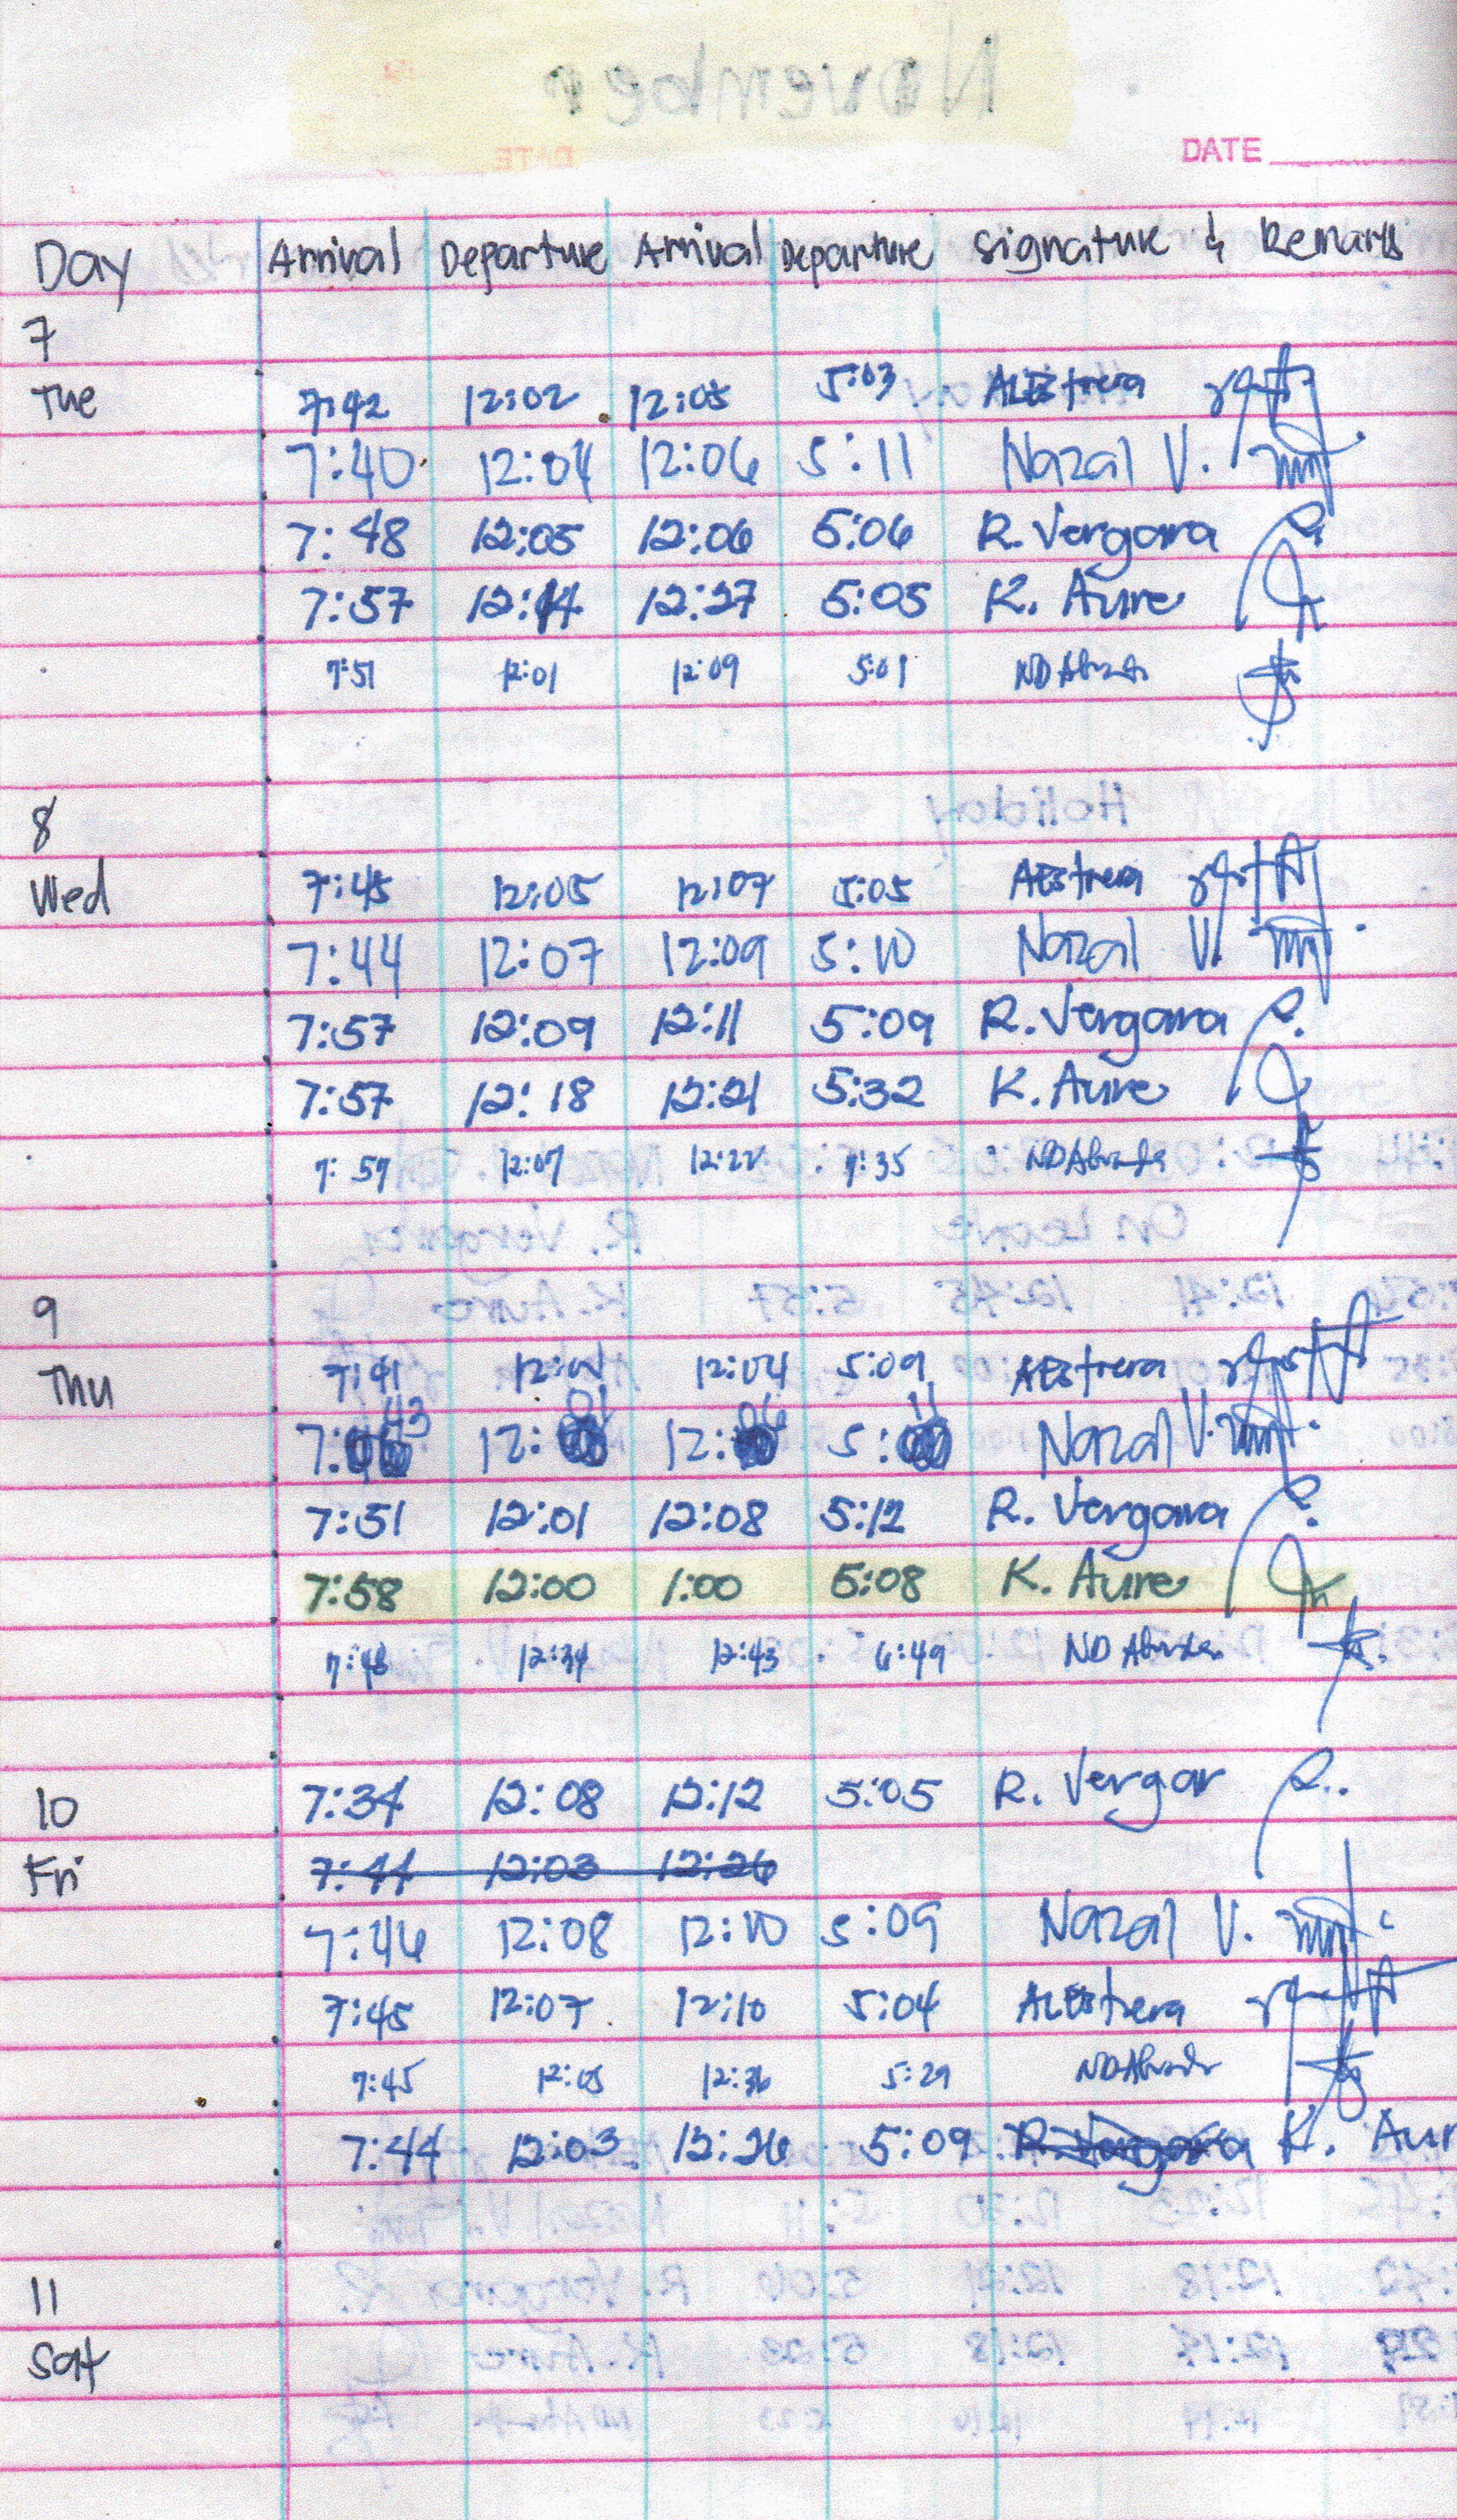 DATE
Day Arrival Departure Arrival Departure Signature & Remarks
7
Tue 7:42 12:02 12:05 5:03 ALEstrera
7:40 12:04 12:06 5:11 Nazal V.
7:48 12:05 12:06 5:06 R. Vergara
7:57 12:14 12:27 5:05 K. Aure
7:51 12:01 12:09 5:01 ND
8
Wed 7:45 12:05 12:07 5:05 AEstrera
7:44 12:07 12:09 5:10 Nazal V.
7:57 12:09 12:11 5:09 R. Vergara
7:57 12:18 12:21 5:32 K. Aure
7:57 12:07 12:22 7:35 ND
9
Thu 7:41 12:04 5:09 AEstrera
7:43 12: 12:06 5:11 Nazal V.
7:51 12:01 12:08 5:12 R. Vergara
7:58 12:00 1:00 5:08 K. Aure
7:48 12:34 12:43 6:49 ND
10 7:34 12:08 12:12 5:05 R. Vergar
Fri 7:44 12:03 12:26
7:46 12:08 12:10 5:09 Nazal V.
7:45 12:07 12:10 5:04 ALEstrera
7:45 12:05 12:36 5:29 ND
7:44 12:03 12:26 5:09 R. Vergara K. Aur
11
Sat